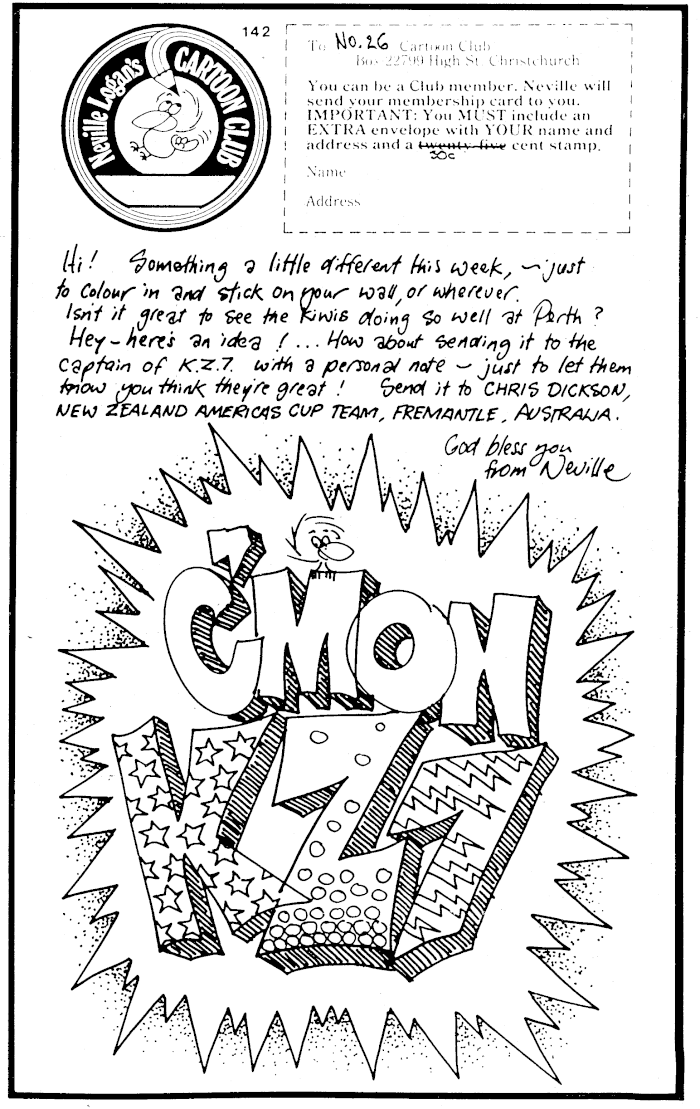 Neville Logan's CARTOON CLUB
142
To No.26 Cartoon Club
Box 22799 High St. Christchurch
You can be a Club member. Neville will
send your membership card to you.
IMPORTANT: You MUST include an
EXTRA envelope with YOUR name and
address and a twenty-five cent stamp.
30c
Name
Address
Hi! Something a little different this week, ~ just
to colour in and stick on your wall, or wherever.
Isn't it great to see the Kiwis doing so well at Perth?
Hey - here's an idea! ... How about sending it to the
Captain of K.Z.7. with a personal note ~ just to let them
know you think they're great! Send it to CHRIS DICKSON,
NEW ZEALAND AMERICAS CUP TEAM, FREMANTLE, AUSTRALIA.
God bless you
from Neville
C'MON
KZ7